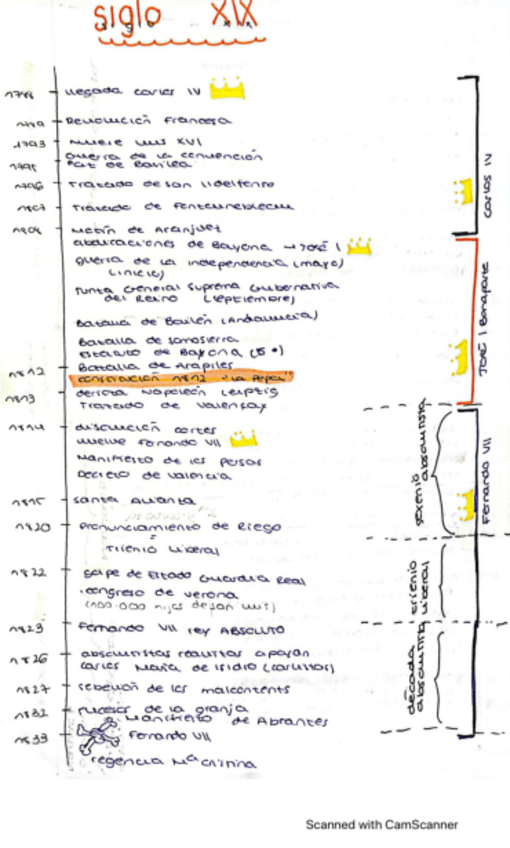 siglo XIX
1788 llegada Carlos IV
1789 Revolución Francesa
1793 muere Luis XVI
guerra de la convención
1795 Paz de Basilea
1796 Tratado de San Ildefonso
1807 Tratado de Fontainebleau
1808 Motín de Aranjuez
abdicaciones de Bayona → José I
guerra de la independencia (mayo)
(inicio)
Junta General Suprema Gubernativa
del Reino (septiembre)
Batalla de Bailén (Andalucía)
Batalla de Somosierra
Estatuto de Bayona
1812 Batalla de Arapiles
constitución 1812 "La Pepa"
1813 derrota Napoleón Leipzig
Tratado de Valençay
1814 disolución cortes
vuelve Fernando VII
Manifiesto de los Persas
Decreto de Valencia
1815 Santa Alianza
1820 pronunciamiento de Riego
=
Trienio Liberal
1822 golpe de Estado Guardia Real
·congreso de Verona
(100.000 hijos de San Luis)
1823 Fernando VII rey ABSOLUTO
1826 absolutistas realistas apoyan
Carlos María de Isidro (carlistas)
1827 rebelión de los malcontents
1832 sucesos de la granja
Manifiesto de Abrantes
1833 Fernando VII
regencia Mª Cristina
Carlos IV
José I Bonaparte
Fernando VII
sexenio absolutista
trienio liberal
década absolutista
Scanned with CamScanner